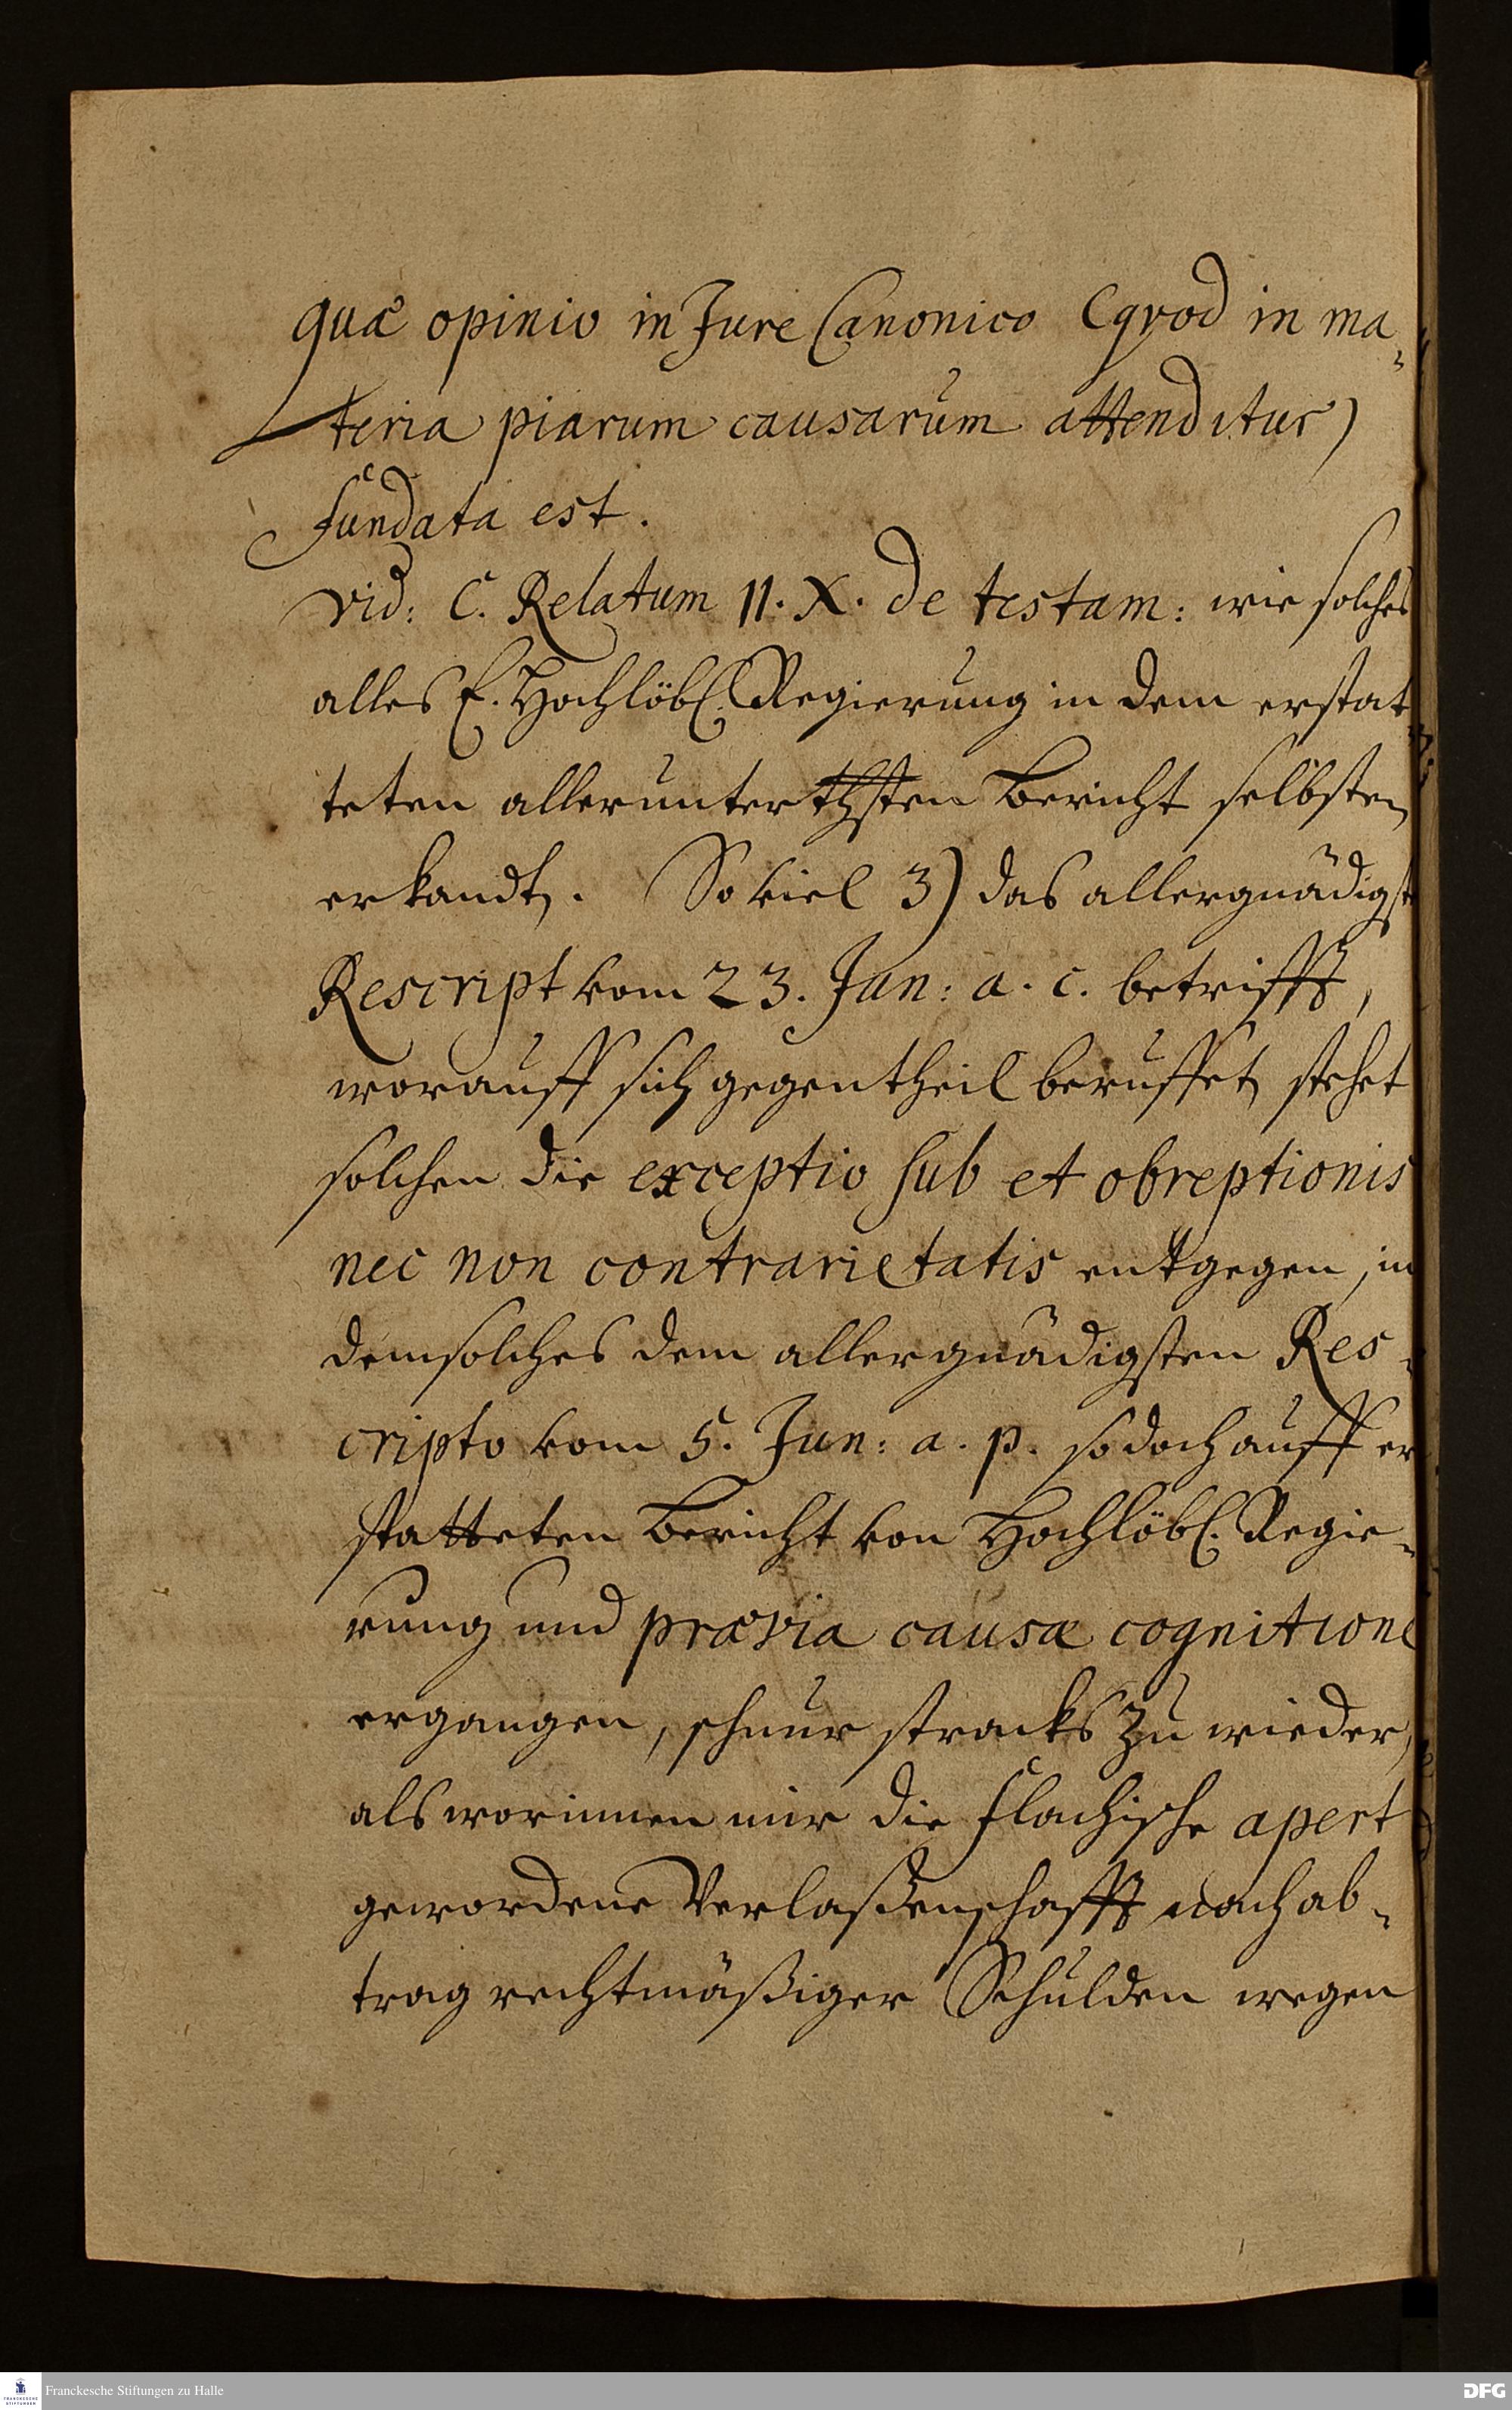 quæ opinio in Jure Canonico (qvod in ma-
teria piarum causarum attenditur)
fundata est.
vid: C. Relatum 11. X. de testam: wie solches
alles E. Hochlöbl. Regierung in dem erstat
teten allerunterthsten Bericht selbsten
erkandt. So viel 3) das allergnädigste
Rescript vom 23. Jan: a. c. betrifft,
worauff sich gegentheil beruffet, stehet
solchen die exceptio sub et obreptionis
nec non contrarietatis entgegen, in
dem solches dem allergnädigsten Res-
cripto vom 5. Jun: a. p. so doch auff er
statteten Bericht von Hochlöbl. Regie-
rung und prævia causæ cognitione
ergangen, schnur stracks zu wieder,
als worinnen mir die Flachische apert
gewordene Verlaßenschafft nach ab-
trag rechtmäßiger Schulden wegen
Franckesche Stiftungen zu Halle
FRANCKESCHE STIFTUNGEN
DFG